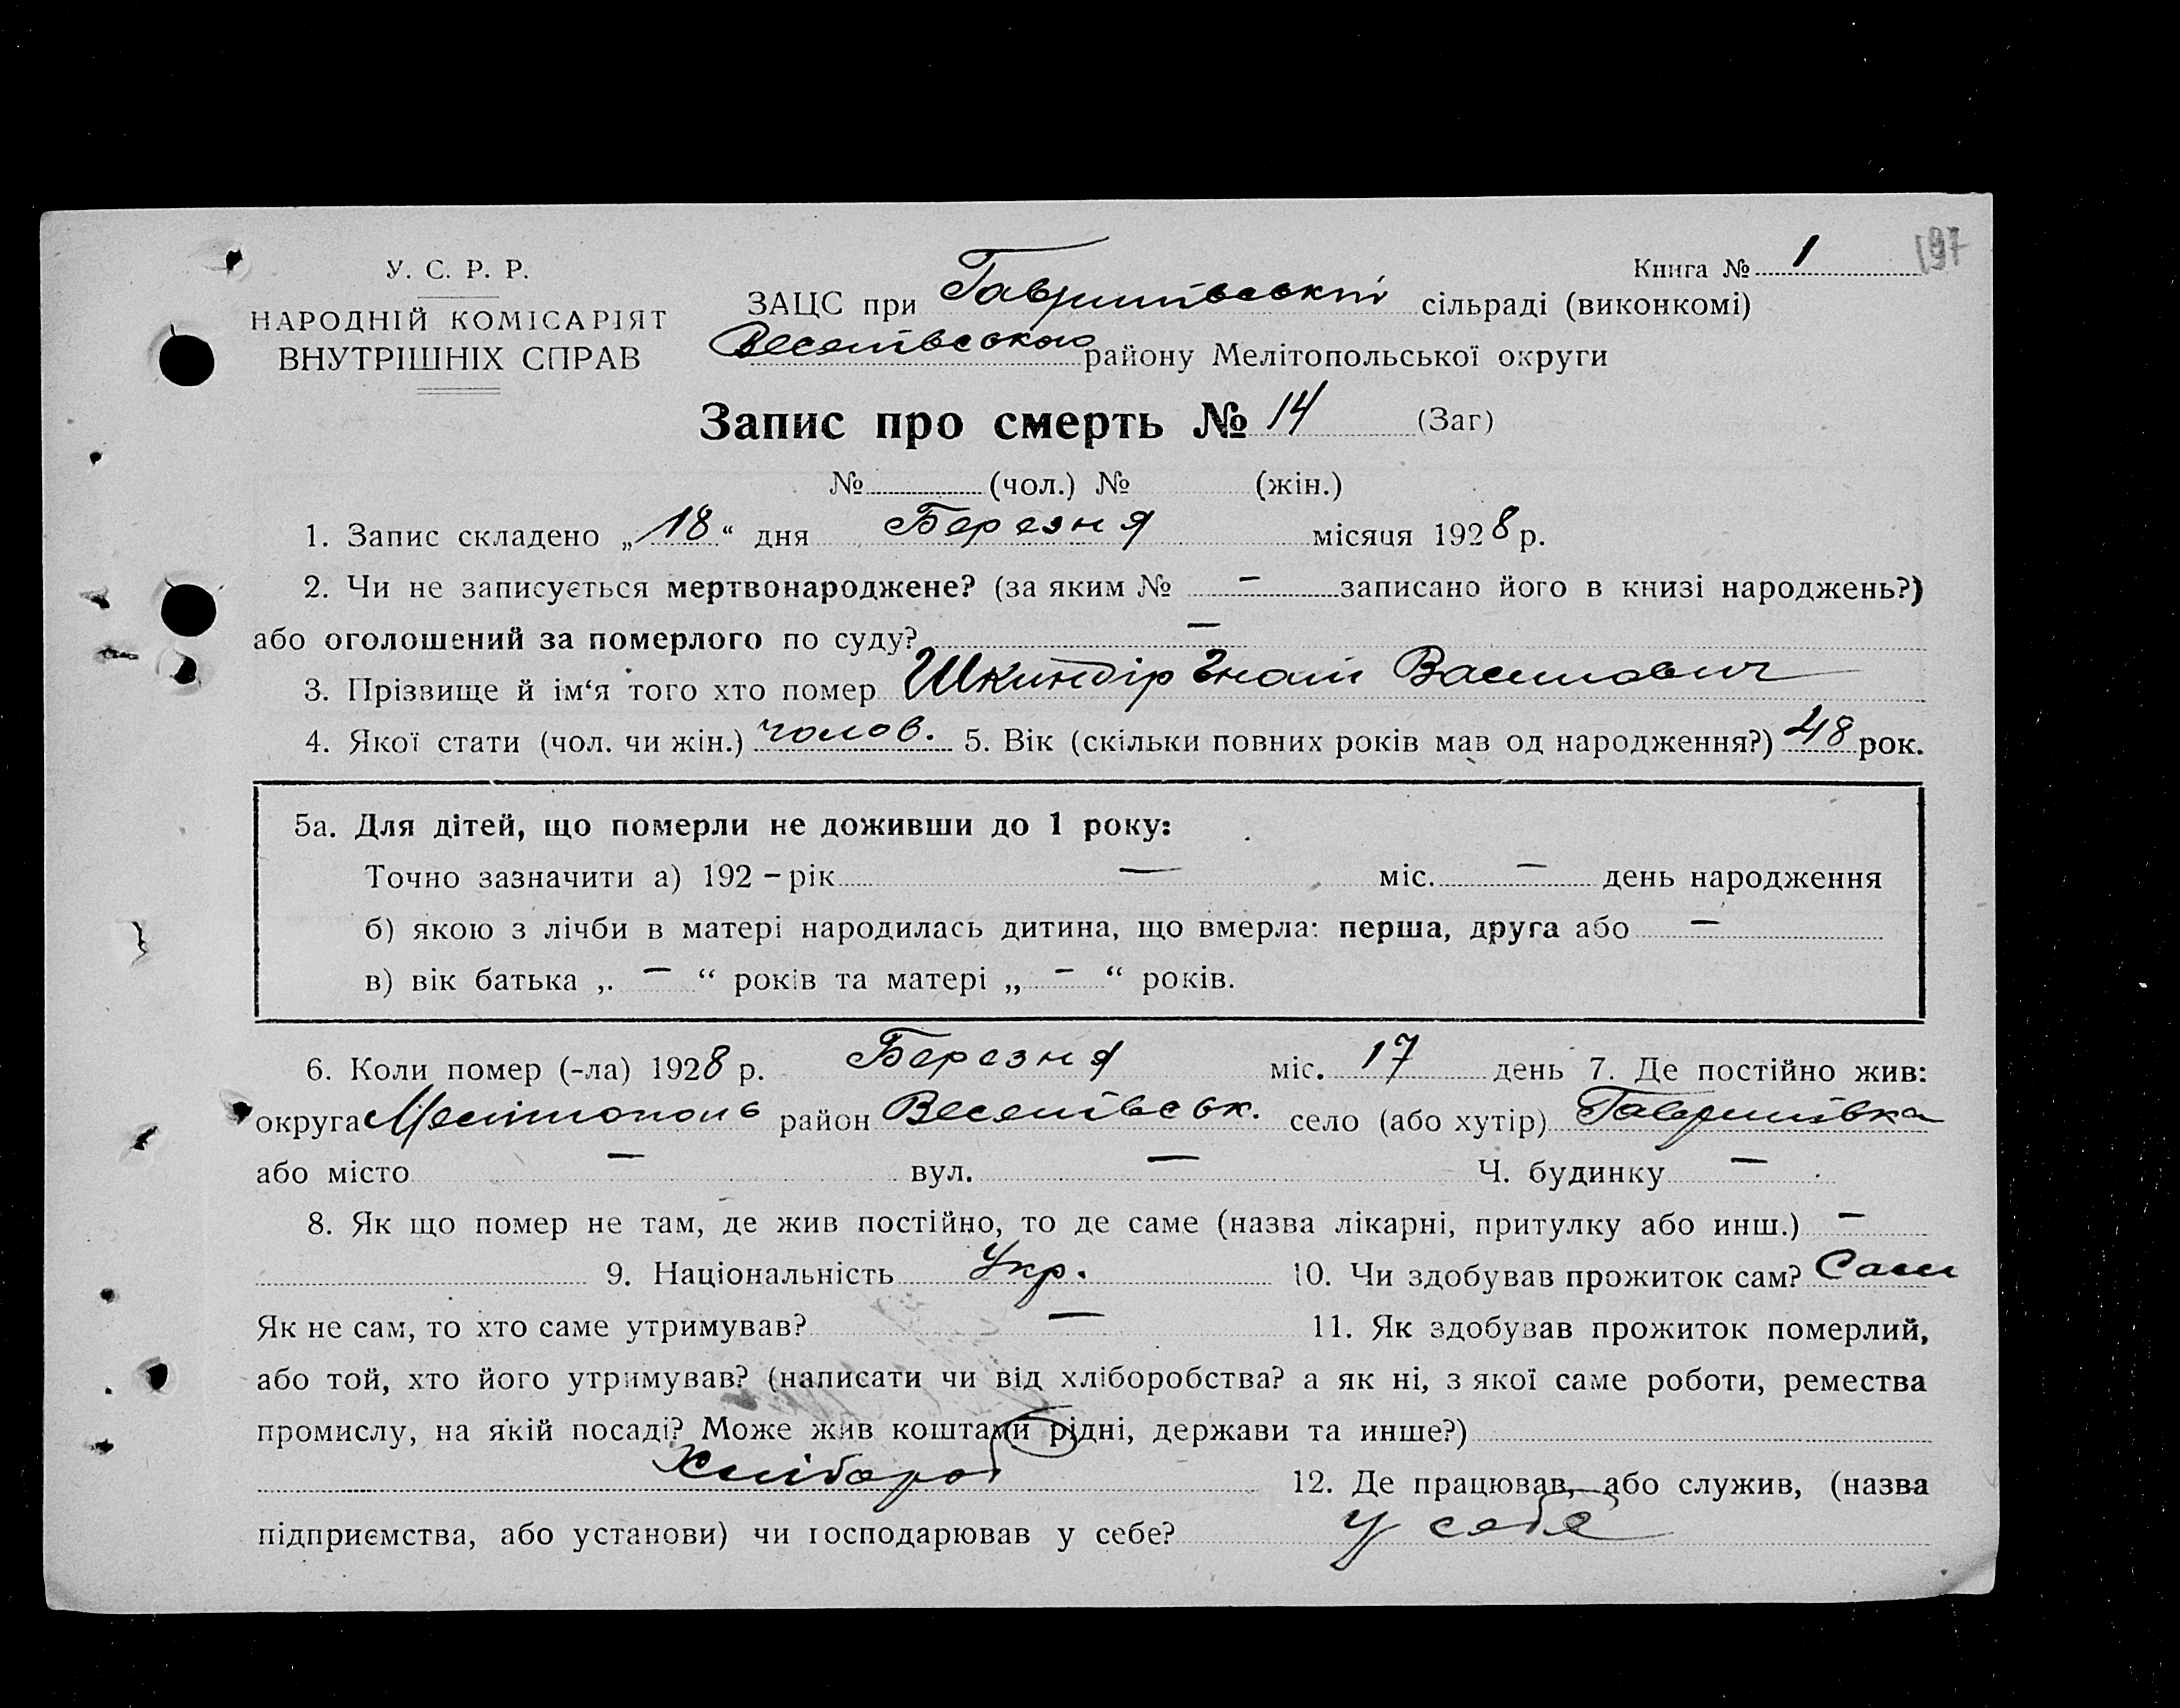 197
У. С. Р. Р.
Книга № 1
НАРОДНІЙ КОМІСАРІЯТ
ВНУТРІШНІХ СПРАВ
ЗАЦС при Гаврилівській сільраді (виконкомі)
Веселівського району Мелітопольської округи
Запис про смерть № 14 (Заг)
№ (чол.) № (жін.)
1. Запис складено „18“ дня Березня місяця 1928 р.
2. Чи не записується мертвонароджене? (за яким № — записано його в книзі народжень?)
або оголошений за померлого по суду? —
3. Прізвище й ім‘я того хто помер Шкиндір Гнат Василович
4. Якої стати (чол. чи жін.) чолов. 5. Вік (скільки повних років мав од народження?) 48 рок.
5а. Для дітей, що померли не доживши до 1 року:
Точно зазначити а) 192 – рік — міс. — день народження
б) якою з лічби в матері народилась дитина, що вмерла: перша, друга або —
в) вік батька „ — “ років та матері „ — “ років.
6. Коли помер (-ла) 1928 р. Березня міс. 17 день 7. Де постійно жив:
округа Мелітополь район Веселівськ. село (або хутір) Гаврилівка
або місто — вул. — Ч. будинку —
8. Як що помер не там, де жив постійно, то де саме (назва лікарні, притулку або инш.) —
9. Національність Укр. 10. Чи здобував прожиток сам? Сам
Як не сам, то хто саме утримував? — 11. Як здобував прожиток померлий,
або той, хто його утримував? (написати чи від хліборобства? а як ні, з якої саме роботи, ремества
промислу, на якій посаді? Може жив коштами рідні, держави та инше?)
Хлібороб 12. Де працював, або служив, (назва
підприємства, або установи) чи господарював у себе? у себе